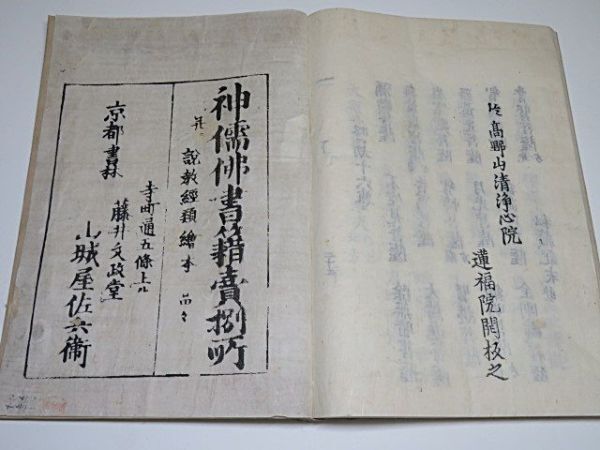 於高野山清浄心院
蓮福院開板之
神儒佛書籍賣捌所
并ニ 説教經類繪本 品々
寺町通五條上ル
京都書林 藤井文政堂
山城屋佐兵衛